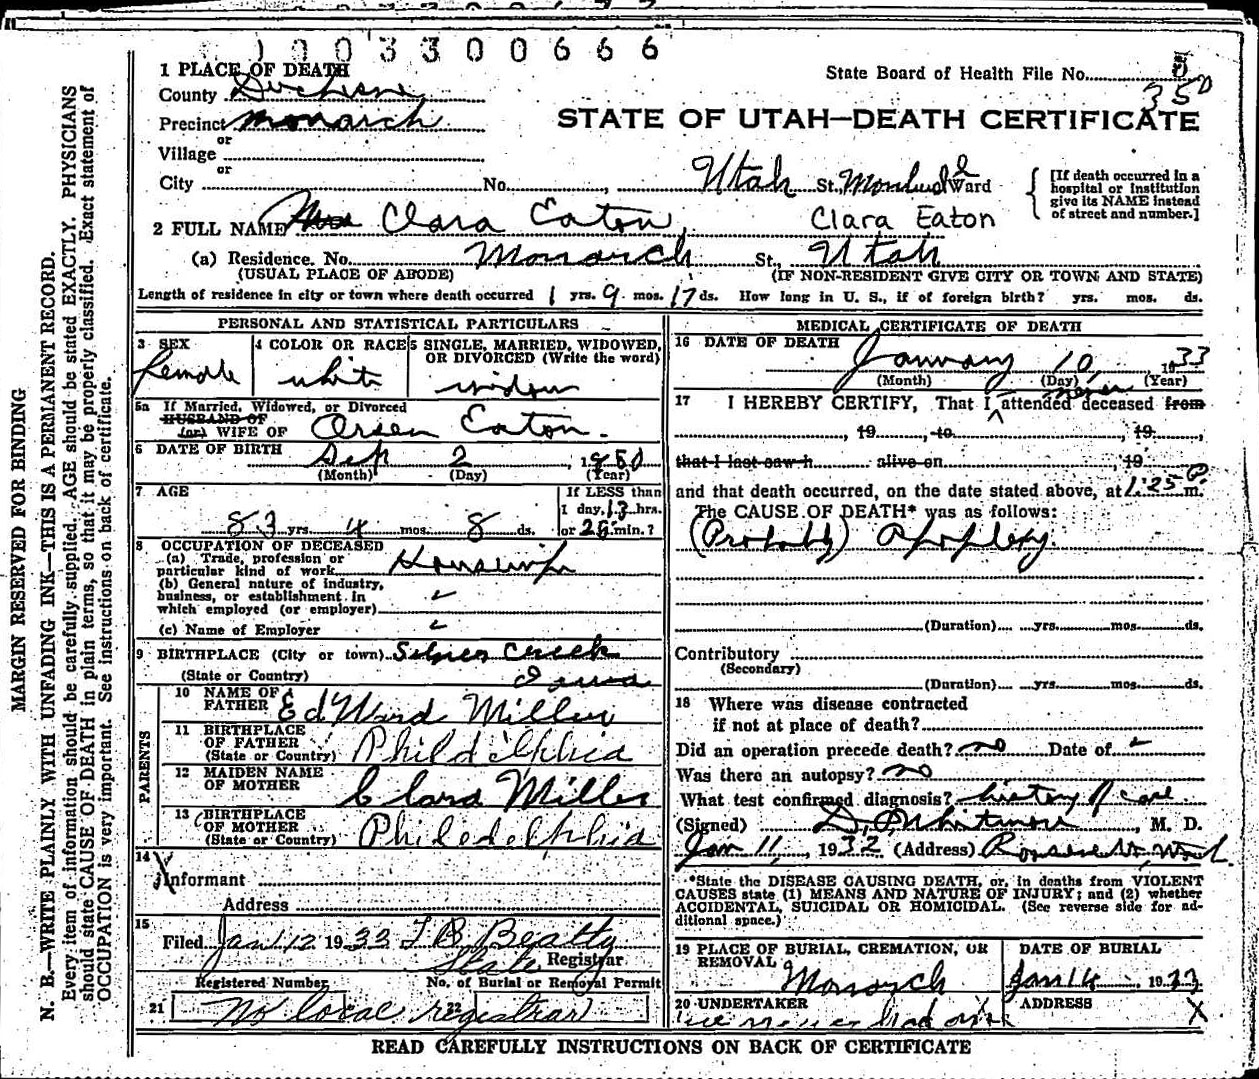 1003300666
1 PLACE OF DEATH
State Board of Health File No.
County Duchesne
35
Precinct Monarch
STATE OF UTAH—DEATH CERTIFICATE
or
Village
or
City No. , Utah St., Ward
[If death occurred in a
hospital or institution
give its NAME instead
of street and number.]
2 FULL NAME Mrs Clara Eaton, Clara Eaton
(a) Residence. No. Monarch St., Utah
(USUAL PLACE OF ABODE) (IF NON-RESIDENT GIVE CITY OR TOWN AND STATE)
Length of residence in city or town where death occurred 1 yrs. 9 mos. 17 ds. How long in U. S., if of foreign birth? yrs. mos. ds.
PERSONAL AND STATISTICAL PARTICULARS
3 SEX
Female
4 COLOR OR RACE
white
5 SINGLE, MARRIED, WIDOWED,
OR DIVORCED (Write the word)
widow
5a If Married, Widowed, or Divorced
HUSBAND OF
(or) WIFE OF Orsen Eaton.
6 DATE OF BIRTH Sep 2, 1850
(Month) (Day) (Year)
7 AGE
83 yrs. 4 mos. 8 ds.
If LESS than
1 day, 13 hrs.
or 25 min.?
8 OCCUPATION OF DECEASED
(a) Trade, profession or
particular kind of work Housewife
(b) General nature of industry,
business, or establishment in
which employed (or employer)
(c) Name of Employer
9 BIRTHPLACE (City or town) Silver Creek
(State or Country) Iowa
PARENTS
10 NAME OF
FATHER EdWard Miller
11 BIRTHPLACE
OF FATHER
(State or Country) Phildelphia
12 MAIDEN NAME
OF MOTHER Clara Miller
13 BIRTHPLACE
OF MOTHER
(State or Country) Philedelphia
14 Informant
Address
15
Filed Jan 12 1933 T B Beatty
State Registrar
Registered Number No. of Burial or Removal Permit
21 No local registrar 22
MEDICAL CERTIFICATE OF DEATH
16 DATE OF DEATH
January 10, 1933
(Month) (Day) (Year)
17 I HEREBY CERTIFY, That I never attended deceased from
, 19 , to , 19 ,
that I last saw h alive on , 19
and that death occurred, on the date stated above, at 1:25 P. m.
The CAUSE OF DEATH* was as follows:
(Probably) Apoplexy.
(Duration) yrs. mos. ds.
Contributory
(Secondary)
(Duration) yrs. mos. ds.
18 Where was disease contracted
if not at place of death?
Did an operation precede death? no Date of
Was there an autopsy? no
What test confirmed diagnosis? history of case
(Signed) D. Whitmore, M. D.
Jan 11, 1932 (Address) Roosevelt, Utah.
*State the DISEASE CAUSING DEATH, or, in deaths from VIOLENT
CAUSES state (1) MEANS AND NATURE OF INJURY; and (2) whether
ACCIDENTAL, SUICIDAL OR HOMICIDAL. (See reverse side for ad-
ditional space.)
19 PLACE OF BURIAL, CREMATION, OR
REMOVAL Monarch
DATE OF BURIAL
Jan 14, 1933
20 UNDERTAKER
we never had one
ADDRESS
X
READ CAREFULLY INSTRUCTIONS ON BACK OF CERTIFICATE
MARGIN RESERVED FOR BINDING
N. B.—WRITE PLAINLY WITH UNFADING INK—THIS IS A PERMANENT RECORD.
Every item of information should be carefully supplied. AGE should be stated EXACTLY. PHYSICIANS
should state CAUSE OF DEATH in plain terms, so that it may be properly classified. Exact statement of
OCCUPATION is very important. See instructions on back of certificate.